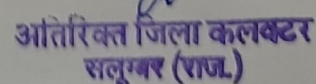 अतिरिक्त जिला कलक्टर
सलूम्बर (राज.)